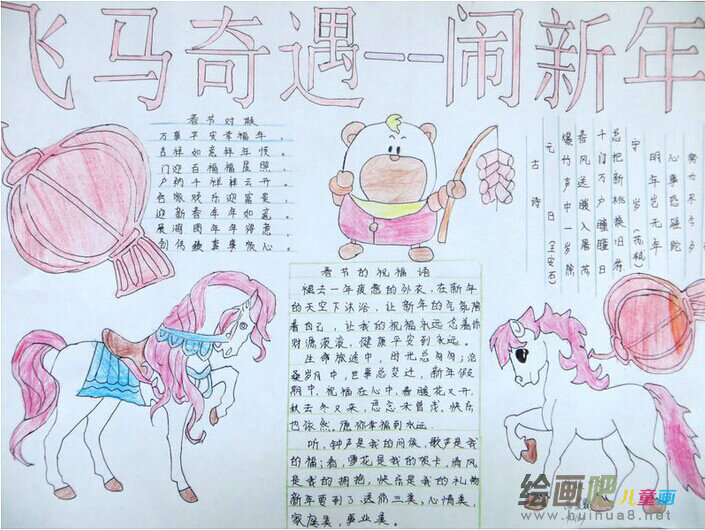 飞马奇遇——闹新年
春节对联
万事平安幸福年。
吉祥如意祥年候。
门迎百福福星照，
户纳千祥祥云开。
迎新春年年如意。
春节的祝福语
褪去一年疲惫的外衣，在新年
的天空下沐浴，让新年的气氛陪
着自己，让我的祝福永远
财源滚滚，健康平安到永远。
生命旅途中，时光总匆匆；
岁月中，世事总变迁，新年假
期中，祝福在心中。春暖花又开，
秋去冬又来，思念未曾走，快乐
也依然。愿你幸福到永远
听，钟声是我的问候，歌声是我
的福，雪花是我的贺卡，清风
是我的拥抱，快乐是我的礼物
新年要到了，送你三美，心情美，
家庭美，事业美。
努力尽今夕
心事恐蹉跎
明年岂无年
守岁（苏轼）
总把新桃换旧符
千门万户曈曈日
春风送暖入屠苏
爆竹声中一岁除
元日（王安石）
古诗
绘画吧儿童画
www.huihua8.net